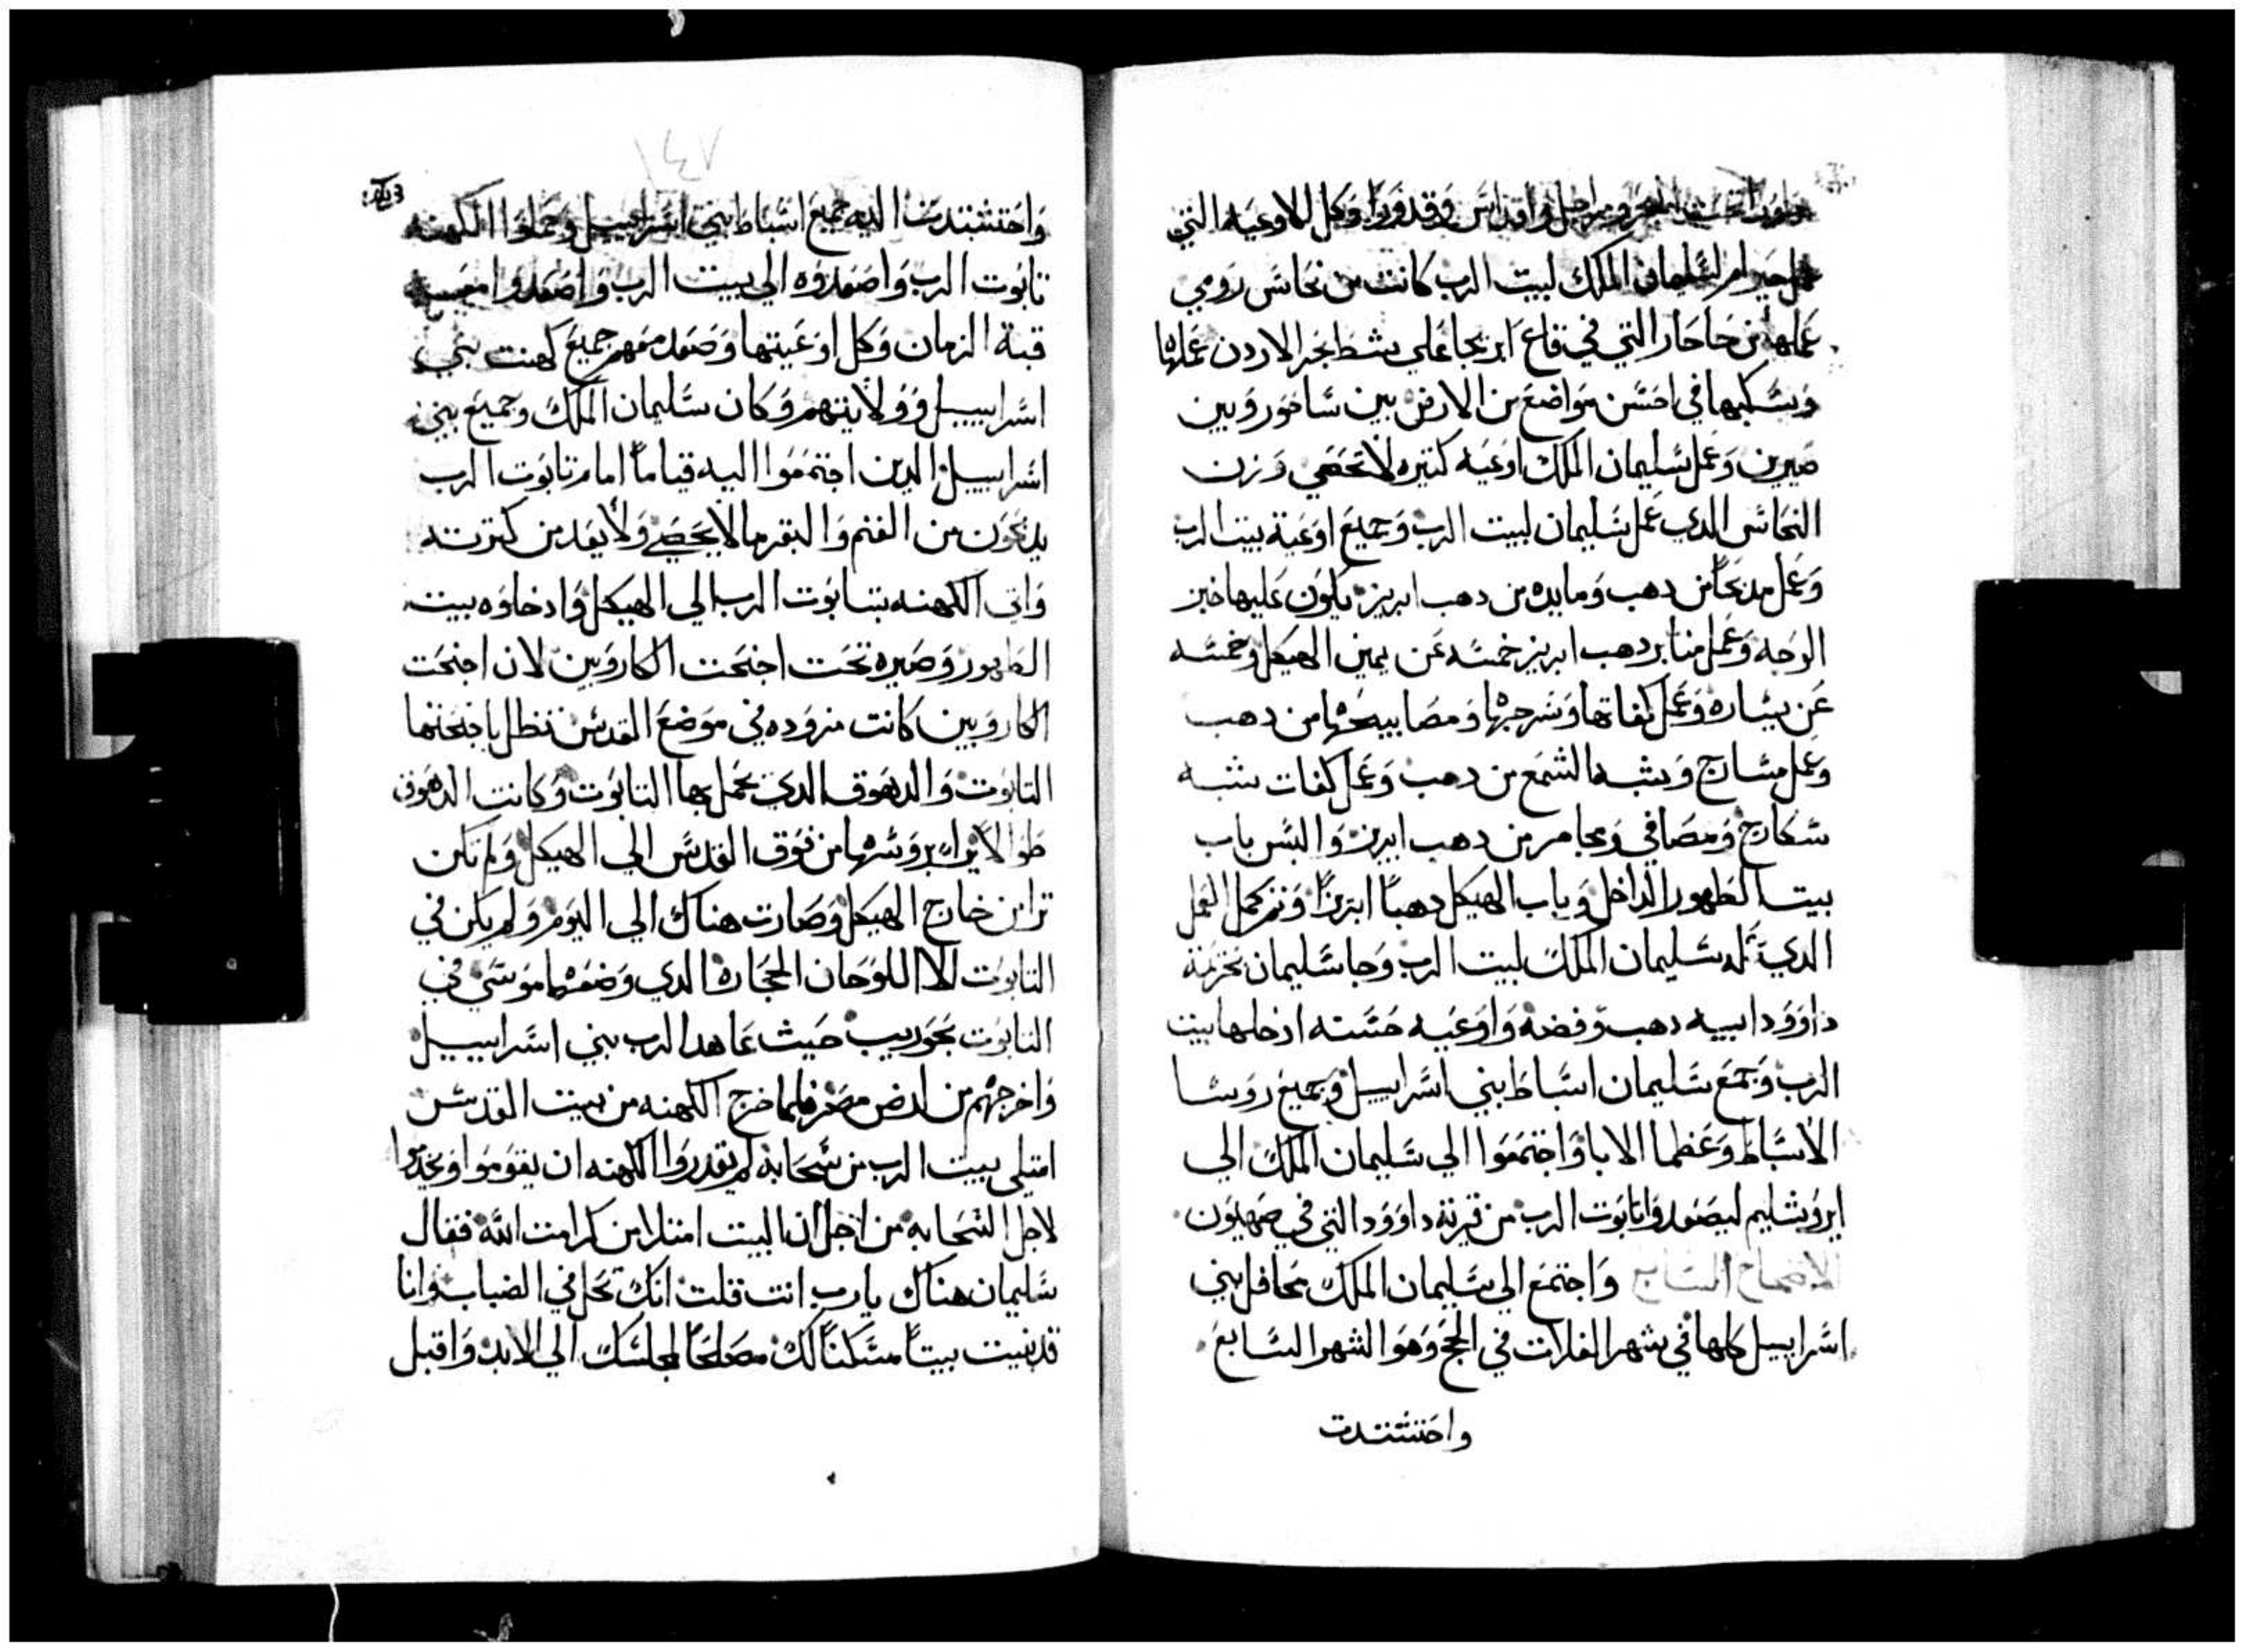 تحت البحر ومراجل واقداس وقدور وكل الاوعيه التي
عمل حيرام لسليمان الملك لبيت الرب كانت من نحاس رومي
عملها من حاحار التي في قاع ايريحا علي شط بحر الاردن عملها
وسكبها في احسن مواضع من الارض بين ساخور وبين
صيرين وعمل سليمان الملك اوعيه كتيره لا تحصي وزن
النحاس الدي عمل سليمان لبيت الرب وجميع اوعية بيت الرب
وعمل مدبحا من دهب ومايده من دهب ابريز يكون عليها خبز
الوجه وعمل منابر دهب ابريز خمسه عن يمين الهيكل وخمسه
عن يساره وعمل كفاتها وسرجها ومصابيحها من دهب
وعمل مسارج وشبه الشمع من دهب وعمل كفات شبه
سكارج ومصافي ومجامر من دهب ابريز والبس باب
بيت الطهور الداخل وباب الهيكل دهبا ابريزا وتم كمل العمل
الدي عمله سليمان الملك لبيت الرب وجا سليمان بحرمة
داوود ابيه دهب وفضه واوعيه حسنه ادخلها بيت
الرب وجمع سليمان اسباط بني اسراييل وجميع روسا
الاسباط وعظما الابا واجتمعوا الي سليمان الملك الي
ايروشليم ليصعدوا تابوت الرب من قرية داوود التي في صهيون
الاصحاح السابع واجتمع الي سليمان الملك محافل بني
اسراييل كلها في شهر الغلات في الحج وهو الشهر السابع
واحتشدت
واحتشدت اليه جميع اسباط بني اسراييل وحملوا الكهنه
تابوت الرب واصعدوه الي بيت الرب واصعدوا معه
قبة الزمان وكل اوعيتها وصعد معهم جميع كهنت بني
اسراييل وولايتهم وكان سليمان الملك وجميع بني
اسراييل الدين اجتمعوا اليه قياما امام تابوت الرب
يدبحون من الغنم والبقر ما لا يحصي ولا يعد من كترته
واتي الكهنه بتابوت الرب الي الهيكل وادخلوه بيت
الطهور وصيره تحت اجنحت الكاروبين لان اجنحت
الكاروبين كانت مروده في موضع القدس تظل باجنحتها
التابوت والدهوق الدي يحمل بها التابوت وكانت الدهوق
طوالا يرا بروسها من فوق القدس الي الهيكل ولم تكن
ترا من خارج الهيكل وصارت هناك الي اليوم ولم يكن في
التابوت الا اللوحان الحجاره الدي وضعهما موسي في
التابوت بحوريب حيث عاهد الرب بني اسراييل
واخرجهم من ارض مصر فلما خرج الكهنه من بيت القدس
امتلي بيت الرب من سحابه لم يقدروا الكهنه ان يقوموا ويخدموا
لاجل السحابه من اجل ان البيت امتلا من كرامت الله فقال
سليمان هناك يارب انت قلت انك تحل في الضباب وانا
قد بنيت بيتا مسكنا لك مصلحا لمجلسك الي الابد واقبل